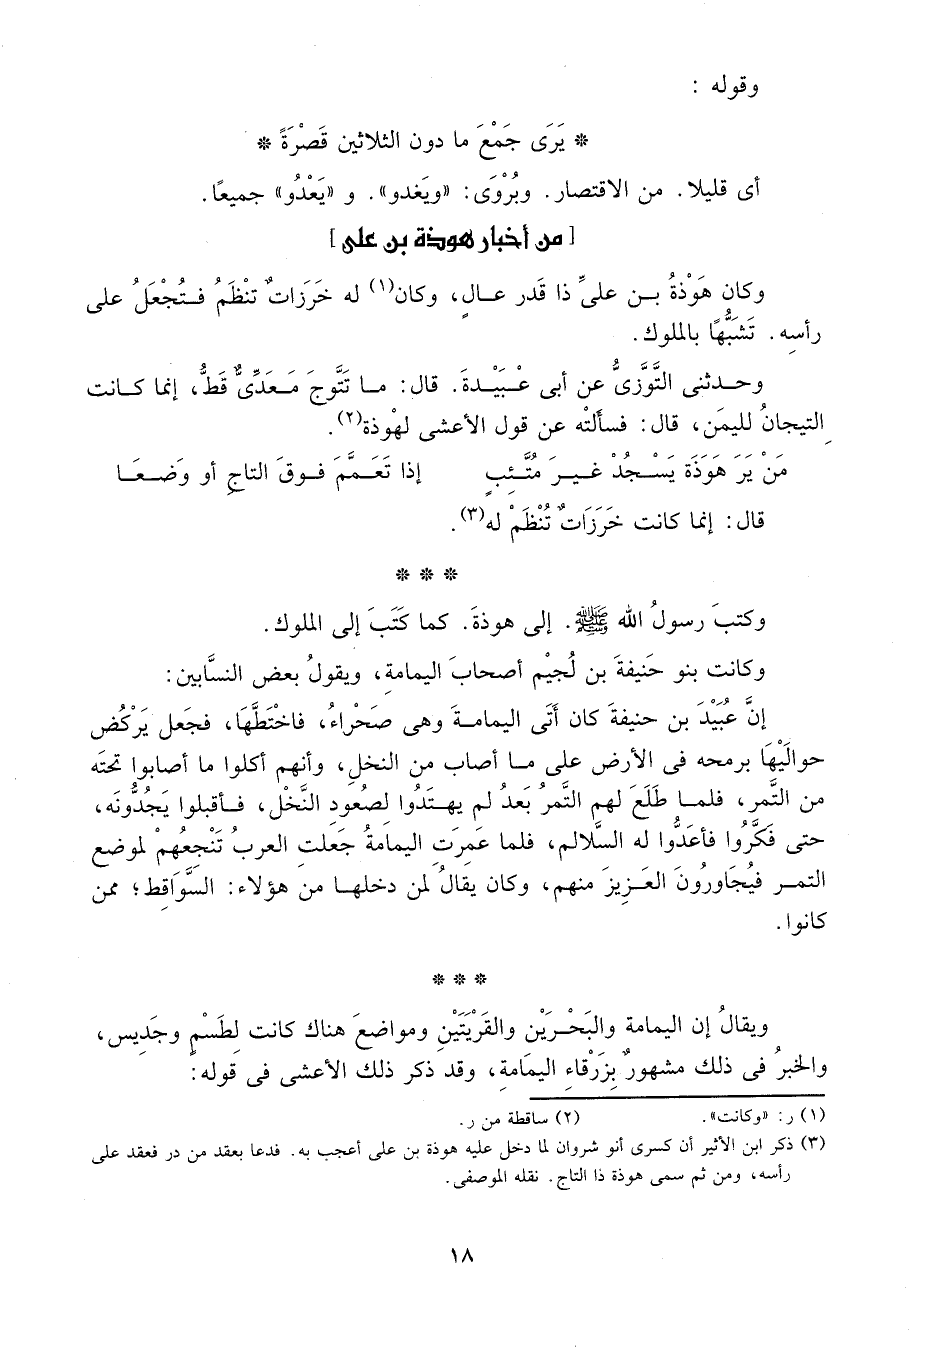 وقوله :
* يَرَى جَمْعَ ما دون الثلاثين قَصْرَةً *
أى قليلا. من الاقتصار. ويُرْوَى: «ويَغدو». و «يَعْدُو» جميعًا.
[ من أخبار هوذة بن على ]
وكان هَوْذةُ بن علىٍّ ذا قَدر عالٍ، وكان(١) له خَرَزاتٌ تنْظَمُ فتُجْعَلُ على
رأسِه. تَشَبُّهًا بالملوك.
وحدثنى التَّوَّزىُّ عن أبى عُبَيْدةَ. قال: ما تَتَّوجَ مَعدِّىٌّ قَطُّ، إنما كانت
التيجانُ لليمَن، قال: فسألتْه عن قول الأعشى لهْوذة(٢).
مَنْ يَرَ هَوذَةَ يَسْجُدْ غيرَ مُتَّئبٍ إذا تَعَمَّمَ فوقَ التاجِ أو وَضعَا
قال: إنما كانت خَرَزَاتٌ تُنْظَمْ له(٣).
* * *
وكتبَ رسولُ الله ﷺ. إلى هوذةَ. كما كَتَبَ إلى الملوك.
وكانت بنو حَنيفةَ بن لُجيْم أصحابَ اليمامة، ويقولُ بعض النسَّابين:
إنَّ عُبَيْدَ بن حنيفةَ كان أتَى اليمامةَ وهى صَحْراءُ، فاخْتَطَّهَا، فجَعل يَرْكُض
حوالَيْهَا برمحه فى الأرض على ما أصاب من النخل، وأنهم أكلوا ما أصابوا تحتَه
من التَّمر، فلما طَلَعَ لهم التَّمرُ بَعدُ لم يهتَدُوا لصُعودِ النَّخْل، فأقبلوا يَجُدُّونَه،
حتى فَكَّرُوا فأعَدُّوا له السَّلالم، فلما عَمِرَتِ اليمامةُ جَعلت العربُ تَنْجعُهمْ لموضع
التمر فيُجَاورُونَ العَزِيزَ منهم، وكان يقالُ لمن دخلها من هؤلاء: السَّوَاقط؛ ممن
كانوا.
* * *
ويقالُ إن اليمامة والبَحْرَيْن والقَرْيَتَيْنِ ومواضعَ هناك كانت لِطَسْمٍ وجَديس،
والخبرُ فى ذلك مشهورٌ بزَرْقاءِ اليمَامة، وقد ذكر ذلك الأعشى فى قوله:
(١) ر: «وكانت». (٢) ساقطة من ر.
(٣) ذكر ابن الأثير أن كسرى أنو شروان لما دخل عليه هوذة بن على أعجب به. فدعا بعقد من در فعقد على
رأسه، ومن ثم سمى هوذة ذا التاج. نقله الموصفى.
١٨